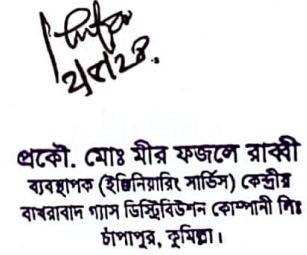 প্রকৌ. মোঃ মীর ফজলে রাব্বী
ব্যবস্থাপক (ইঞ্জিনিয়ারিং সার্ভিস) কেন্দ্রীয়
বাখরাবাদ গ্যাস ডিস্ট্রিবিউশন কোম্পানী লিঃ
চাঁপাপুর, কুমিল্লা।